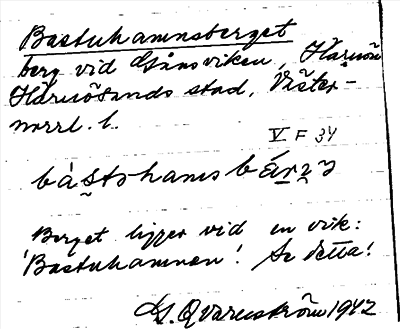 Bastuhamnsberget
berg vid Gånsviken, Härnön
Härnösands stad, Väster-
norrl. l.
V F 34
Berget ligger vid en vik:
'Bastuhamnen'. Se detta!
G. Qvarnström 1942